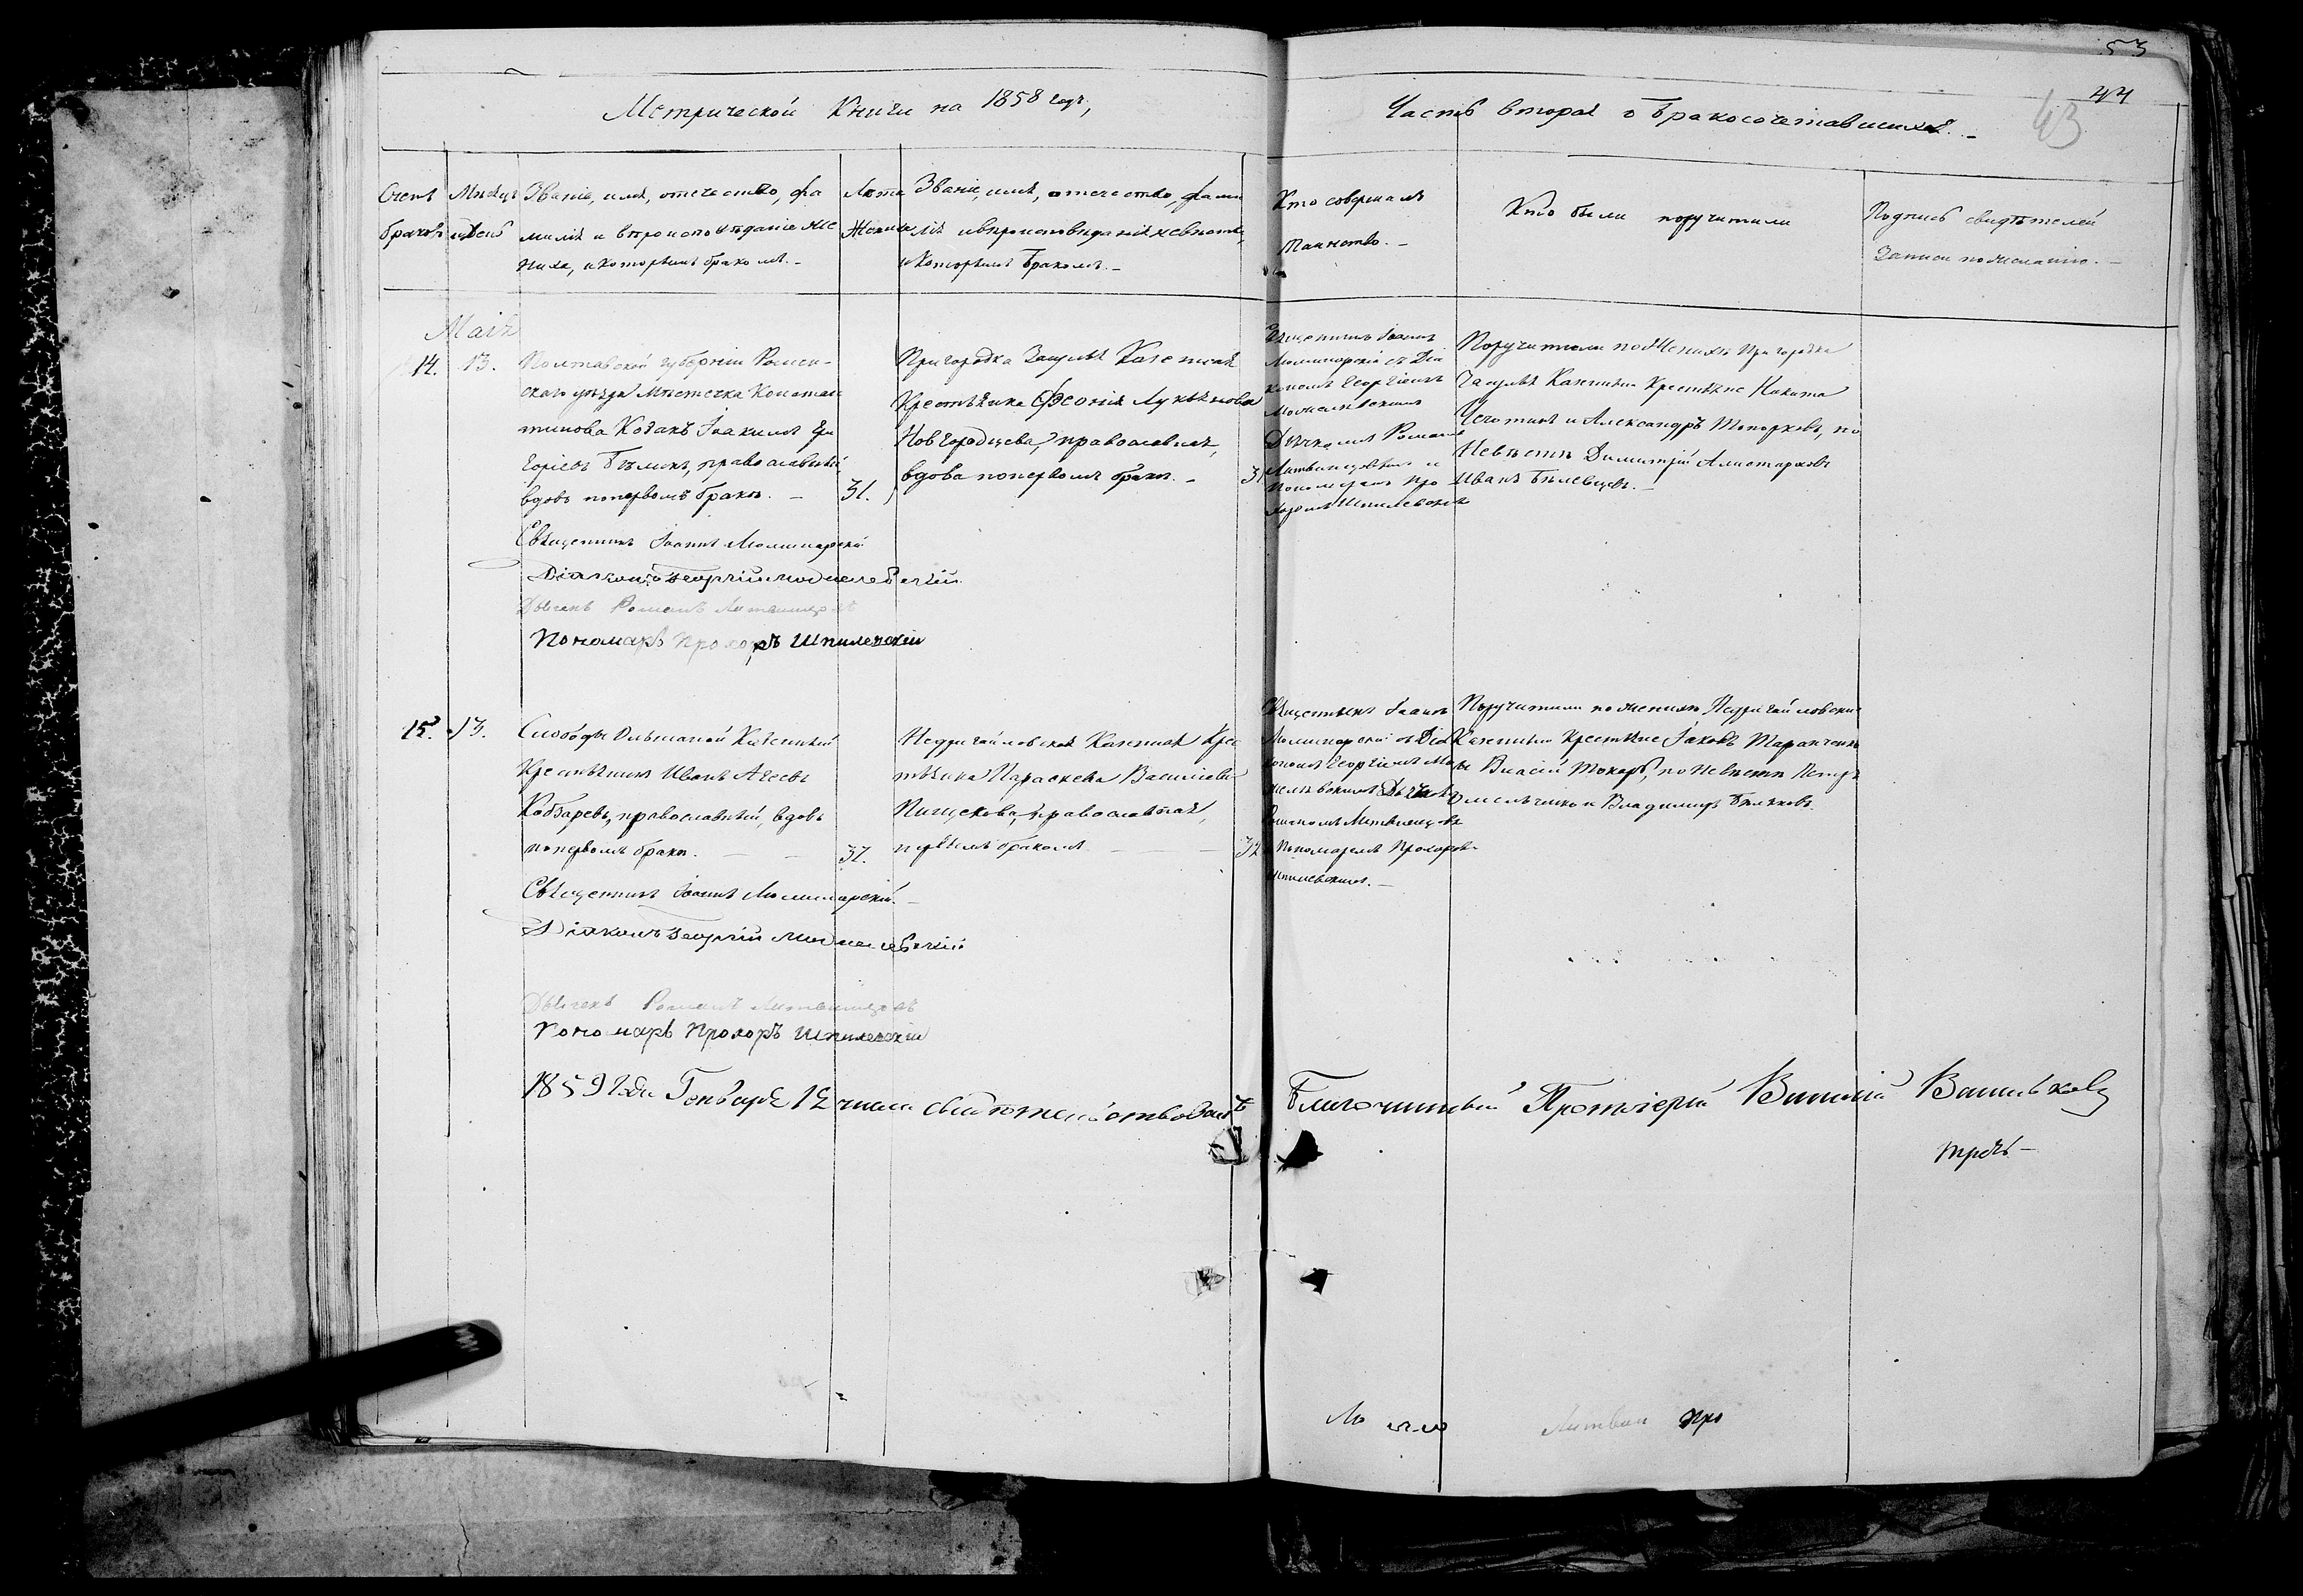 53
44
43
Метрической Книги на 1858 годъ,
Часть вторая о бракосочетавшихся. -
Счетъ браковъ
Мѣсяцъ и День
Званіе, имя, отечество, фа
милія и вѣроисповѣданіе же
ниха, и которымъ бракомъ. -
Лѣта
Жениха
Званіе, имя, отечество, фами
лія и вѣроисповѣданіе невѣсты,
и которымъ бракомъ. -
Кто совершалъ
таинство. -
Кто были поручители
Подпись свидѣтелей
записи по желанію. -
Маія
14. 13.
Полтавской губерніи Ромен-
скаго уѣзда Мѣстечка Констан
тинова Козакъ Іоакимъ Гри
горіевъ Бѣликъ, православный,
вдовъ по первомъ бракѣ. - 31.
Пригородка Засулья Казенная
Крестьянка Феонія Лукьянова
Новгородцева, православная,
вдова по первомъ бракѣ. -
Священникъ Іоаннъ
съ Діа
кономъ Георгіемъ
Дьячкомъ Романомъ
Литвинцовымъ и
Пономаремъ Про
хоромъ Шпилевскимъ
Поручители по Женихѣ Пригородка
Засулья Казенные Крестьяне Никита
и Александръ Топорковъ, по
Невѣстѣ Димитрій Алистарховъ
Иванъ Бѣлевцевъ. -
Священникъ Іоаннъ
Діаконъ Георгій
Дьячекъ Романъ Литвинцовъ
Пономарь Прохоръ Шпилевскій
15. 13.
Слободы Ольшаной Казенный
Крестьянинъ Иванъ Агеевъ
Кобзаревъ, православный, вдовъ
по первомъ бракѣ. - - 37.
Недригайловская Казенная Крес
тьянка Параскева Василіева
Пищекова, православная,
первымъ бракомъ - - 32
Священникъ Іоаннъ
съ Діа
кономъ Георгіемъ
Дьячкомъ
Романомъ Литвинцовымъ
Пономаремъ Прохоромъ
Шпилевскимъ. -
Поручители по женихѣ Недригайловскіе
Казенные Крестьяне Іаковъ Таранченко
и Власій Токарь, по Невѣстѣ Петръ
Омельченко и Владимиръ Бѣляковъ.
Священникъ Іоаннъ
Діаконъ Георгій
Дьячекъ Романъ Литвинцовъ
Пономарь Прохоръ Шпилевскій
1859 года Генваря 12 числа свидѣтельствовалъ Благочинный Протоіерей Василій
Литвин Про